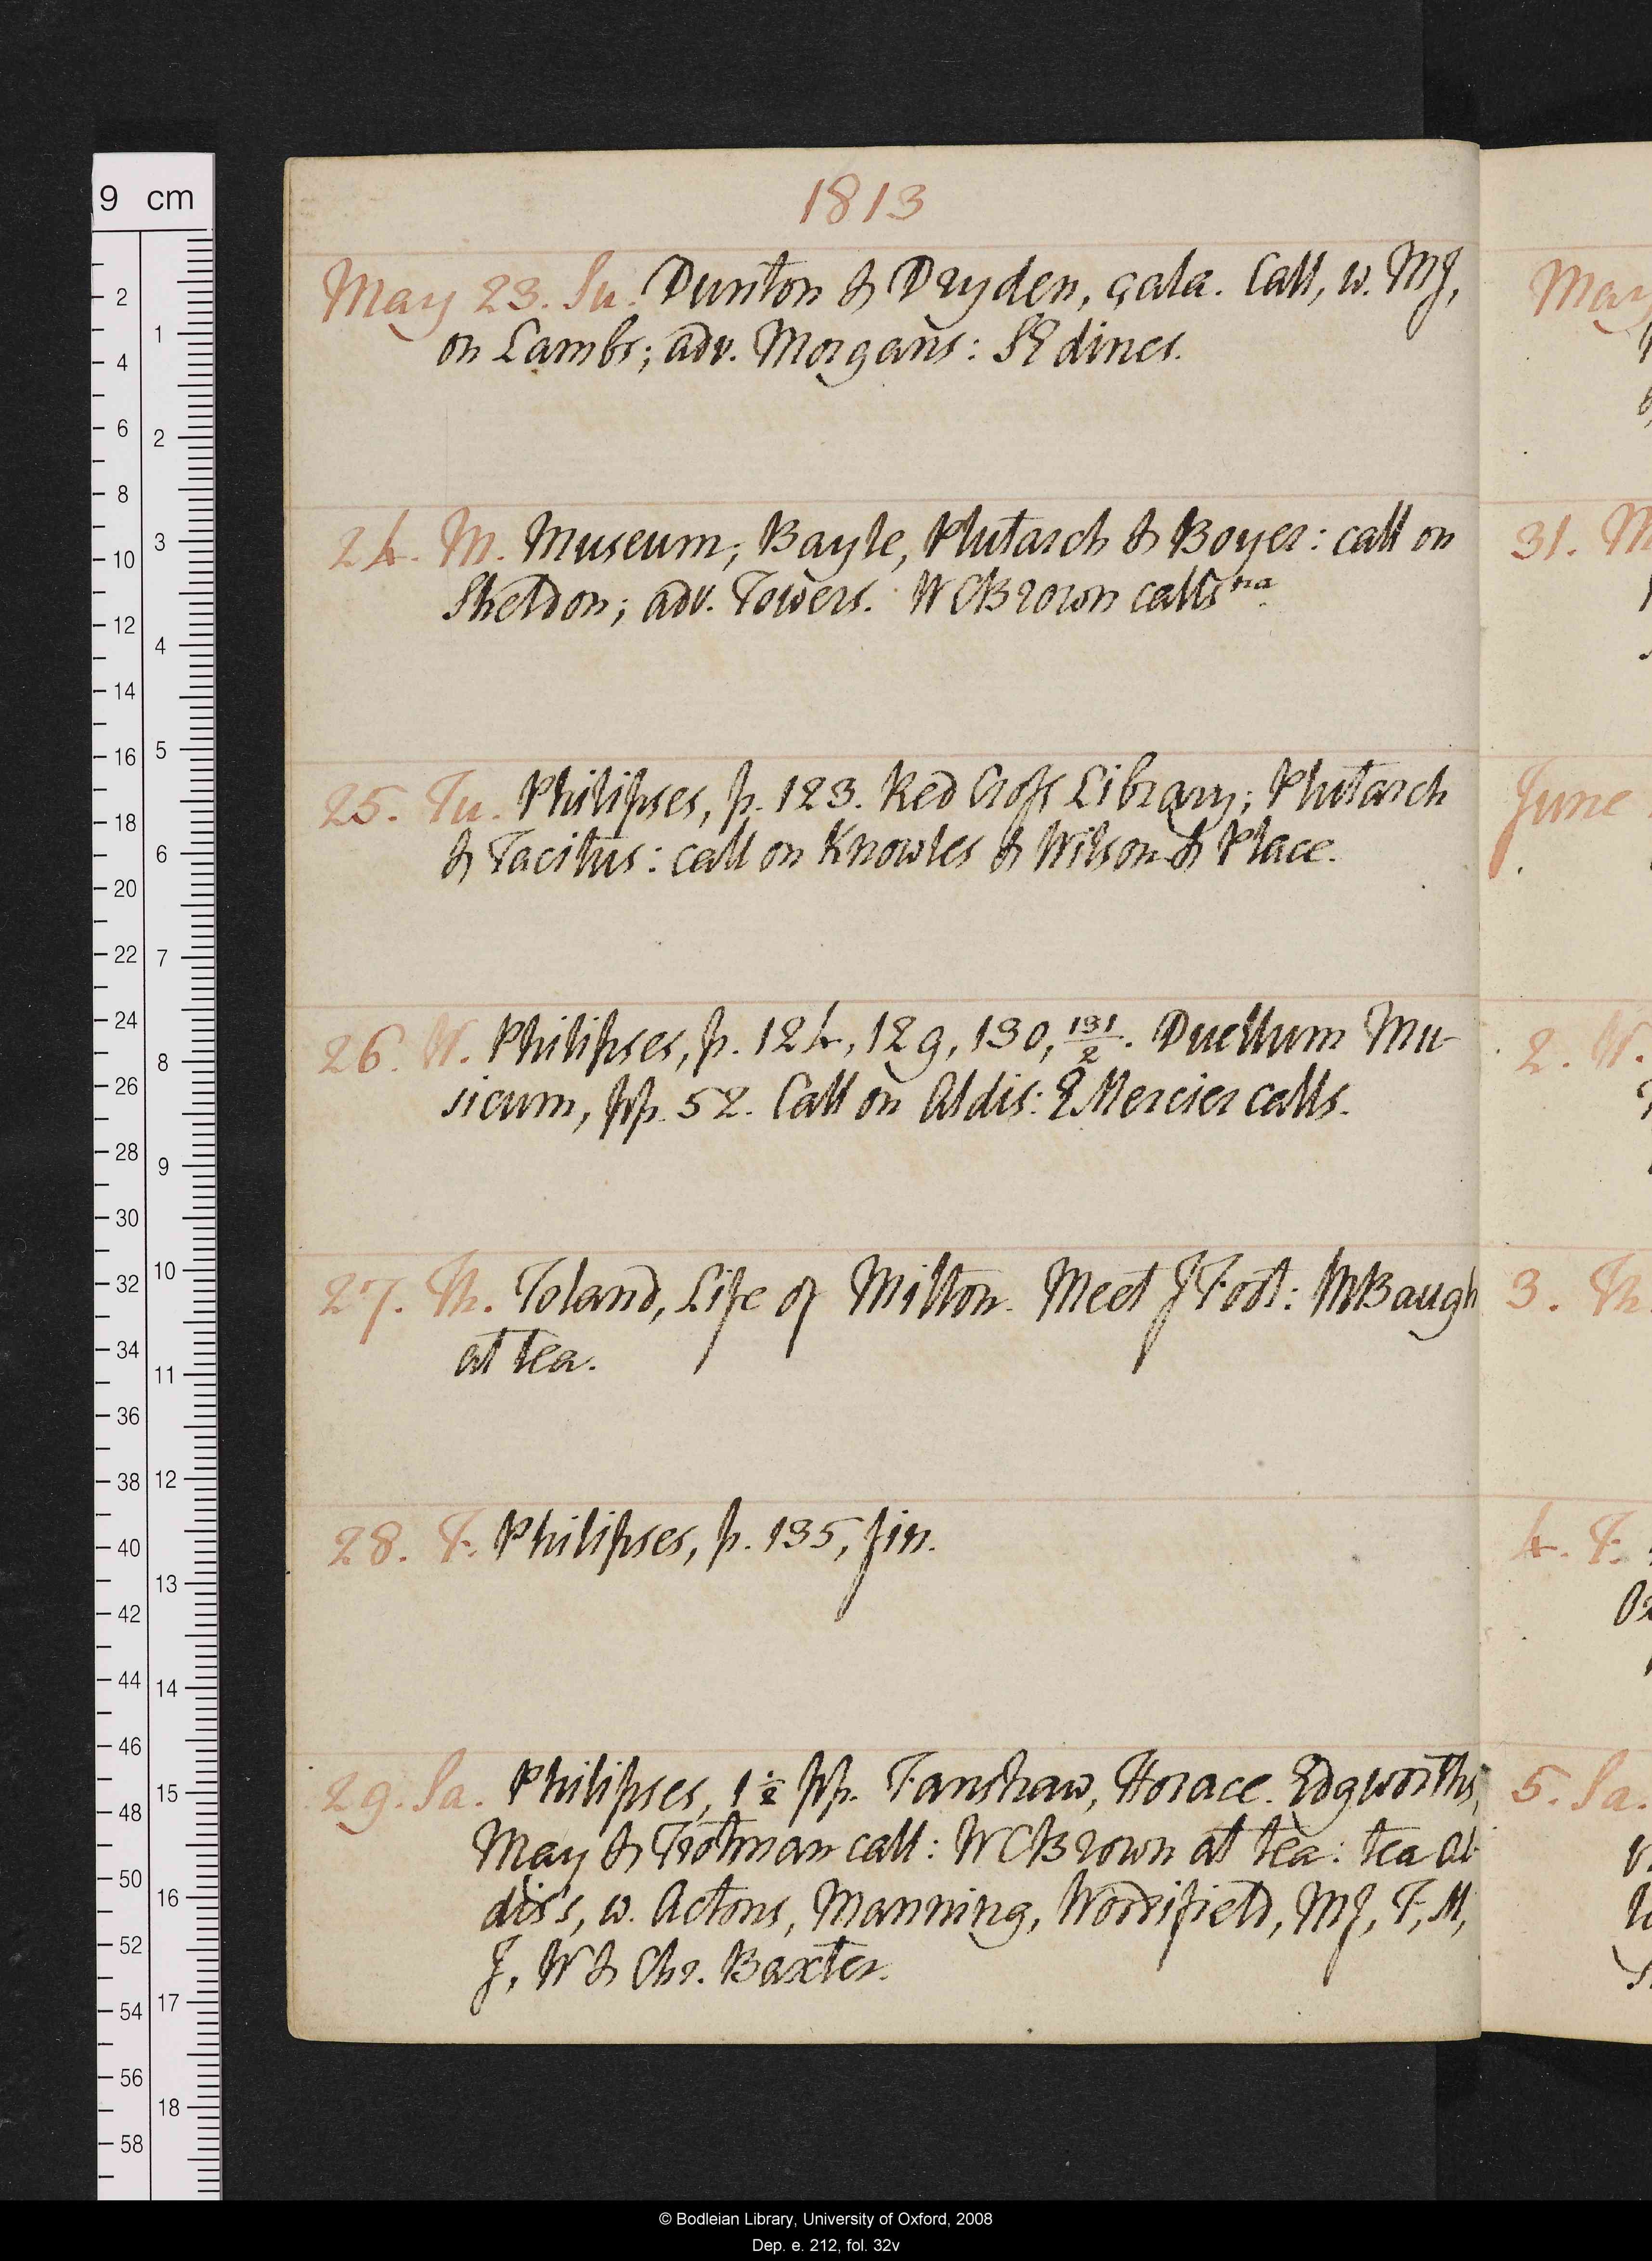 1813
May 23. Su. Dunton & Dryden, çala. Call, w. MJ,
on Lambs; adv. Morgans: SE dines.
24. M. Museum; Bayle, Plutarch & Boyer: call on
Sheldon; adv. Towers. WCBrown calls na.
25. Tu. Philipses, p. 123. Red Cross Library; Plutarch
& Tacitus: call on Knowles & Wilson & Place.
26. W. Philipses, p. 124, 129, 130, 131/2. Duellum Mu-
sicum, pp. 52. Call on Aldis: E Mercier calls.
27. Th. Toland, Life of Milton. Meet J Foot: MBaugh
at tea.
28. F. Philipses, p. 135, fin.
29. Sa. Philipses, 1½ pp. Fanshaw, Horace. Edgworths,
May & Trotman call: WCBrown at tea: tea Al-
dis's, w. Actons, Manning, Wordifield, MJ, F, M,
J, W & Chr. Baxter.
May
31. M
June
2. W.
3. Th
4. F.
5. Sa.
9 cm
2 4 6 8 10 12 14 16 18 20 22 24 26 28 30 32 34 36 38 40 42 44 46 48 50 52 54 56 58
1 2 3 4 5 6 7 8 9 10 11 12 13 14 15 16 17 18
© Bodleian Library, University of Oxford, 2008
Dep. e. 212, fol. 32v